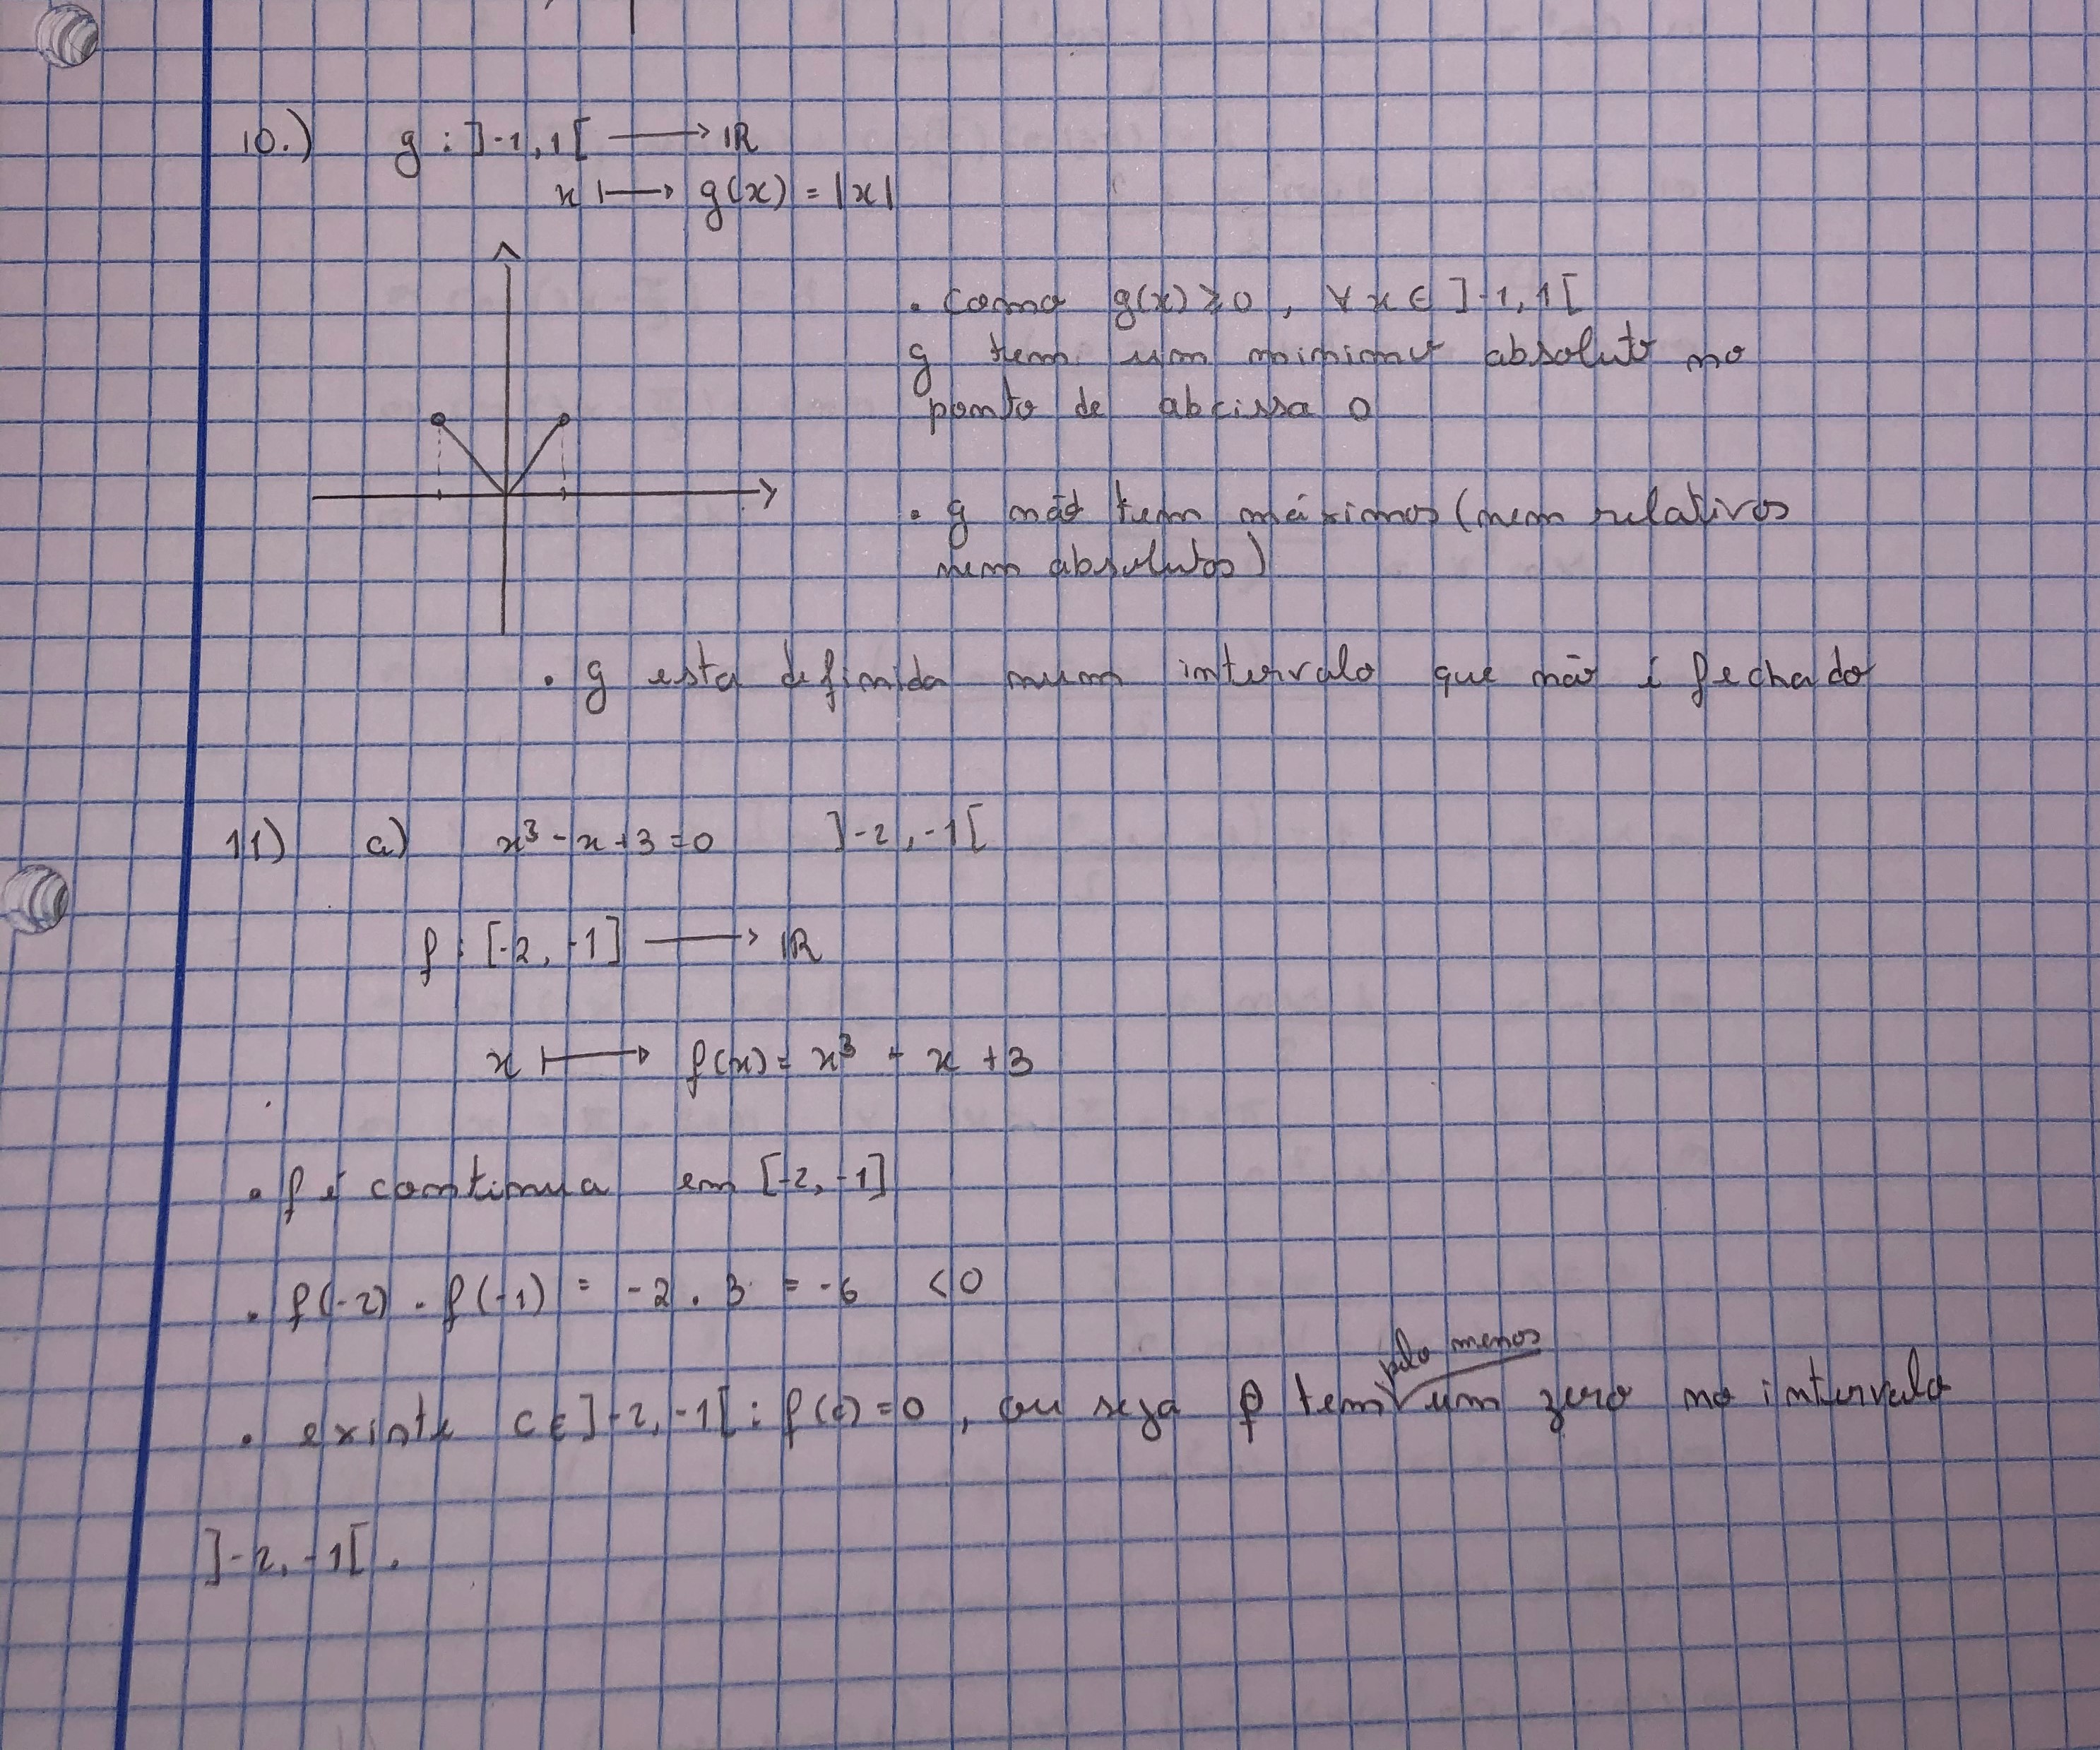 10.) g : ]-1, 1[ ⟶ ℝ
x ⟼ g(x) = |x|
• Como g(x) ≥ 0, ∀ x ∈ ]-1, 1[
g tem um minimo absoluto no
ponto de abcissa 0
• g não tem máximos (nem relativos
nem absolutos)
• g esta definida num intervalo que não é fechado
11) a) x³ - x + 3 = 0 ]-2, -1[
f : [-2, -1] ⟶ ℝ
x ⟼ f(x) = x³ - x + 3
• f é continua em [-2, -1]
• f(-2) . f(-1) = -2 . 3 = -6 < 0
pelo menos
• existe c ∈ ]-2, -1[ : f(c) = 0, ou seja f tem um zero no intervalo
]-2, -1[.